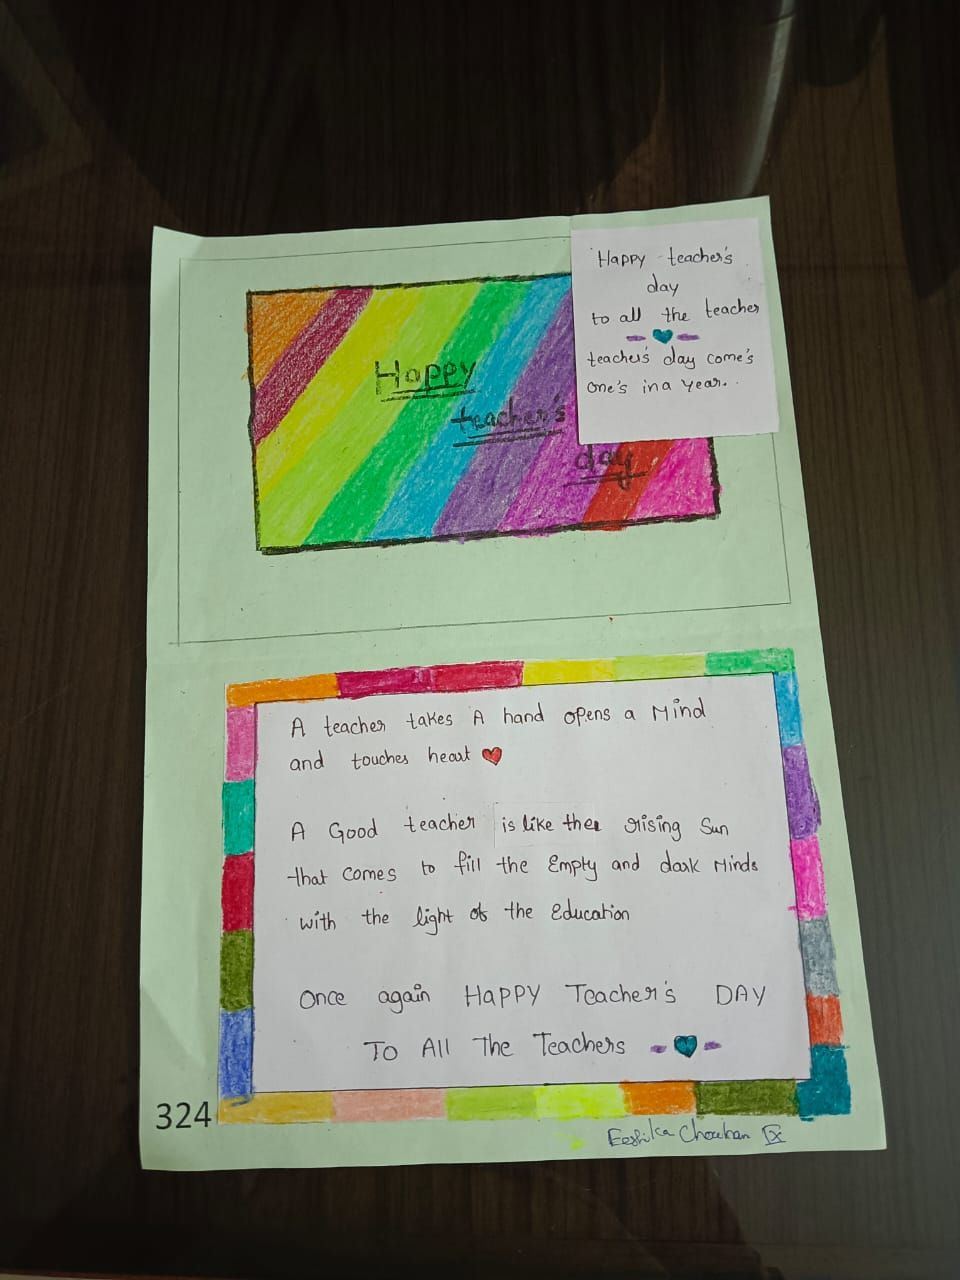 Happy
teacher's
day
Happy teacher's
day
to all the teacher
teacher's day come's
one's in a year.
A teacher takes A hand opens a Mind
and touches heart
A Good teacher is like the rising Sun
that comes to fill the Empty and dark Minds
with the light of the Education
Once again HAPPY Teacher's DAY
TO All The Teachers
324
Eeshika Chouhan IX